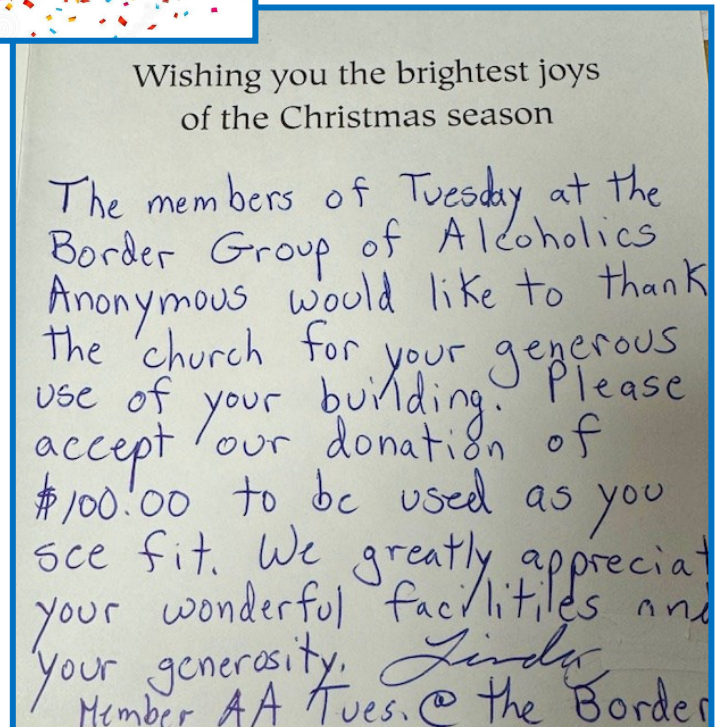 Wishing you the brightest joys
of the Christmas season
The members of Tuesday at the
Border Group of Alcoholics
Anonymous would like to thank
the church for your generous
use of your building. Please
accept our donation of
$100.00 to be used as you
see fit. We greatly appreciat
your wonderful facilitiles and
your generosity. Linda
Member AA Tues. @ the Border